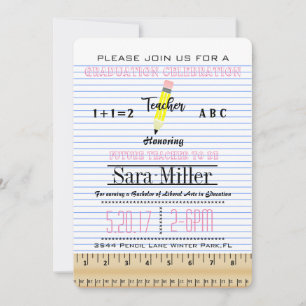 PLEASE JOIN US FOR A
GRADUATION CELEBRATION
Teacher
1+1=2 A B C
Honoring
FUTURE TEACHER TO BE
Sara Miller
For earning a Bachelor of Liberal Arts in Education
5.20.17 2-6PM
3944 PENCIL LANE WINTER PARK,FL
1 2 3 4 5 6 7 8